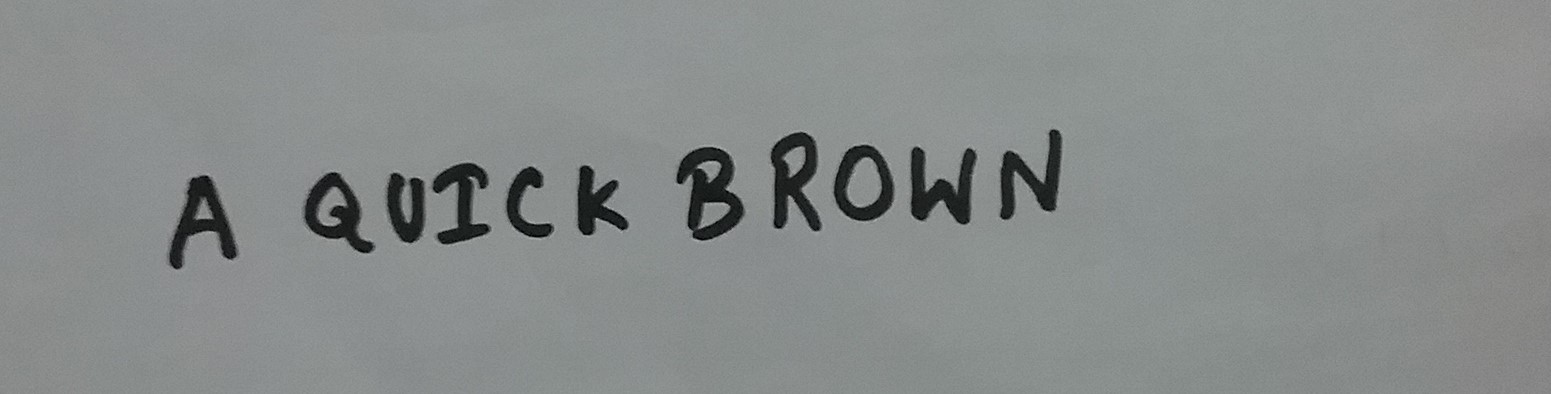 A QUICK BROWN